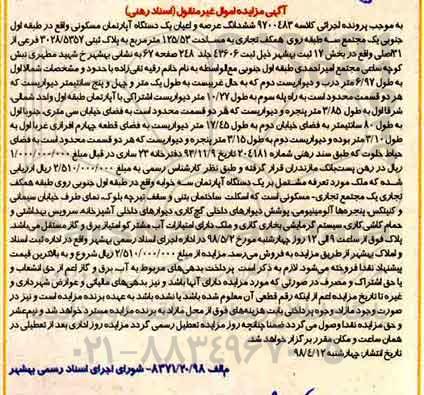 آگهی مزایده اموال غیرمنقول (اسناد رهنی)
به موجب پرونده اجرائی کلاسه ۹۷۰۰۴۸۳ ششدانگ عرصه و اعیان یک دستگاه آپارتمان مسکونی واقع در طبقه اول
جنوبی یک مجتمع سه طبقه روی همکف تجاری به مساحت ۱۲۵/۵۳ متر مربع به پلاک ثبتی ۳۰۲۸/۵۳۵۷ فرعی از
۳۱اصلی واقع در بخش ۱۷ ثبت بهشهر ذیل ثبت ۴۳۶۰۶ جلد ۲۴۸ صفحه ۶۷ به نشانی بهشهر خ شهید مطهری نبش
کوچه ساعی مجتمع امیراحمدی طبقه اول جنوبی مع‌الواسطه به نام خانم رقیه تقی‌زاده با حدود و مشخصات شمالا اول
به طول ۶/۹۷ متر درب و دیواریست دوم که به حال غربیست به طول یک متر و چهل و پنج سانتیمتر دیواریست که
هر دو قسمت محدود است به راه پله سوم به طول ۱۰/۲۷ متر دیواریست اشتراکی با آپارتمان طبقه اول واحد شمالی
شرقا اول به طول ۳/۸۵ متر پنجره و دیواریست که هر دو قسمت محدود است به فضای خیابان سی متری، جنوبا اول
به طول ۸۰ سانتیمتر به فضای خیابان دوم به طول ۱۷/۴۵ متر دیواریست به فضای قطعه چهارم افرازی غربا اول به
طول ۳/۱۰ متر بوده و دیواریست دوم به طول ۳/۱۵ متر پنجره و دیواریست که هر دو قسمت محدود است به فضای
حیاط خلوت که طبق سند رهنی شماره ۲۰۴۱۸۱ تاریخ ۹۳/۱۱/۹ دفترخانه ۲۳ ساری در قبال مبلغ ۱/۰۰۰/۰۰۰/۰۰۰
ریال در رهن پست‌بانک مازندران قرار گرفته و طبق نظر کارشناس رسمی به مبلغ ۲/۵۱۰/۰۰۰/۰۰۰ ریال ارزیابی
شده که ملک مورد تعرفه مشتمل بر یک دستگاه آپارتمان سه خوابه واقع در طبقه اول جنوبی روی طبقه همکف
تجاری یک مجتمع تجاری- مسکونی است که اسکلت ساختمان بتنی و سقف تیرچه بلوک، نمای طرف خیابان سیمانی
و کنیتکس پنجره‌ها آلومینیومی پوشش دیوارهای داخلی گچ‌کاری، دیوارهای داخلی آشپزخانه سرویس بهداشتی و
حمام کاشی‌کاری سیستم گرمایشی بخاری گازی و ملک دارای امتیازات آب مشترکو امتیاز برق و گاز مستقل می‌باشد.
پلاک فوق از ساعت ۹ الی ۱۲ روز چهارشنبه مورخ ۹۸/۵/۲ در اداره اجرای اسناد رسمی بهشهر واقع در اداره ثبت اسناد
و املاک بهشهر از طریق مزایده به فروش می‌رسد. مزایده از مبلغ ۲/۵۱۰/۰۰۰/۰۰۰ ریال شروع و به بالاترین قیمت
پیشنهاد نقدا فروخته می‌شود. لازم به ذکر است پرداخت بدهی‌های مربوط به آب، برق و گاز اعم از حق انشعاب و
یا حق اشتراک و مصرف در صورتی که مورد مزایده دارای آنها باشد و نیز بدهی‌های مالیاتی و عوارض شهرداری و
غیره تا تاریخ مزایده اعم از اینکه رقم قطعی آن معلوم شده باشد یا نشده باشد به عهده برنده مزایده است و نیز در
صورت وجود مازاد، وجوه پرداختی بابت هزینه‌های فوق از محل مازاد به برنده مزایده مسترد خواهد شد و نیم‌عشر
و حق مزایده نقدا وصول می‌گردد ضمنا چنانچه روز مزایده تعطیل رسمی گردد مزایده روز اداری بعد از تعطیلی در
همان ساعت و مکان مقرر برگزار خواهد شد.
تاریخ انتشار: چهارشنبه ۹۸/۴/۱۲
م‌الف ۸۳۷۱/۲۰/۹۸- شورای اجرای اسناد رسمی بهشهر
۰۲۱-۸۸۳۴۹۶۷۰-۵